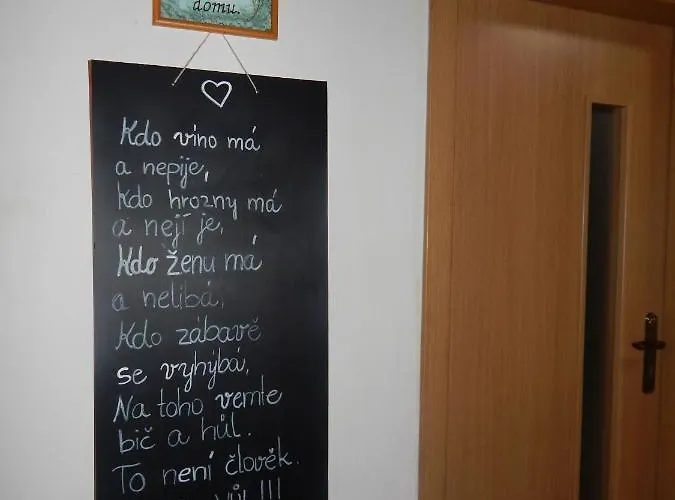 domu.
Kdo víno má
a nepije,
Kdo hrozny má
a nejí je,
Kdo ženu má
a nelibá,
Kdo zábavě
se vyhýbá,
Na toho vemte
bič a hůl.
To není člověk.
vůl!!!